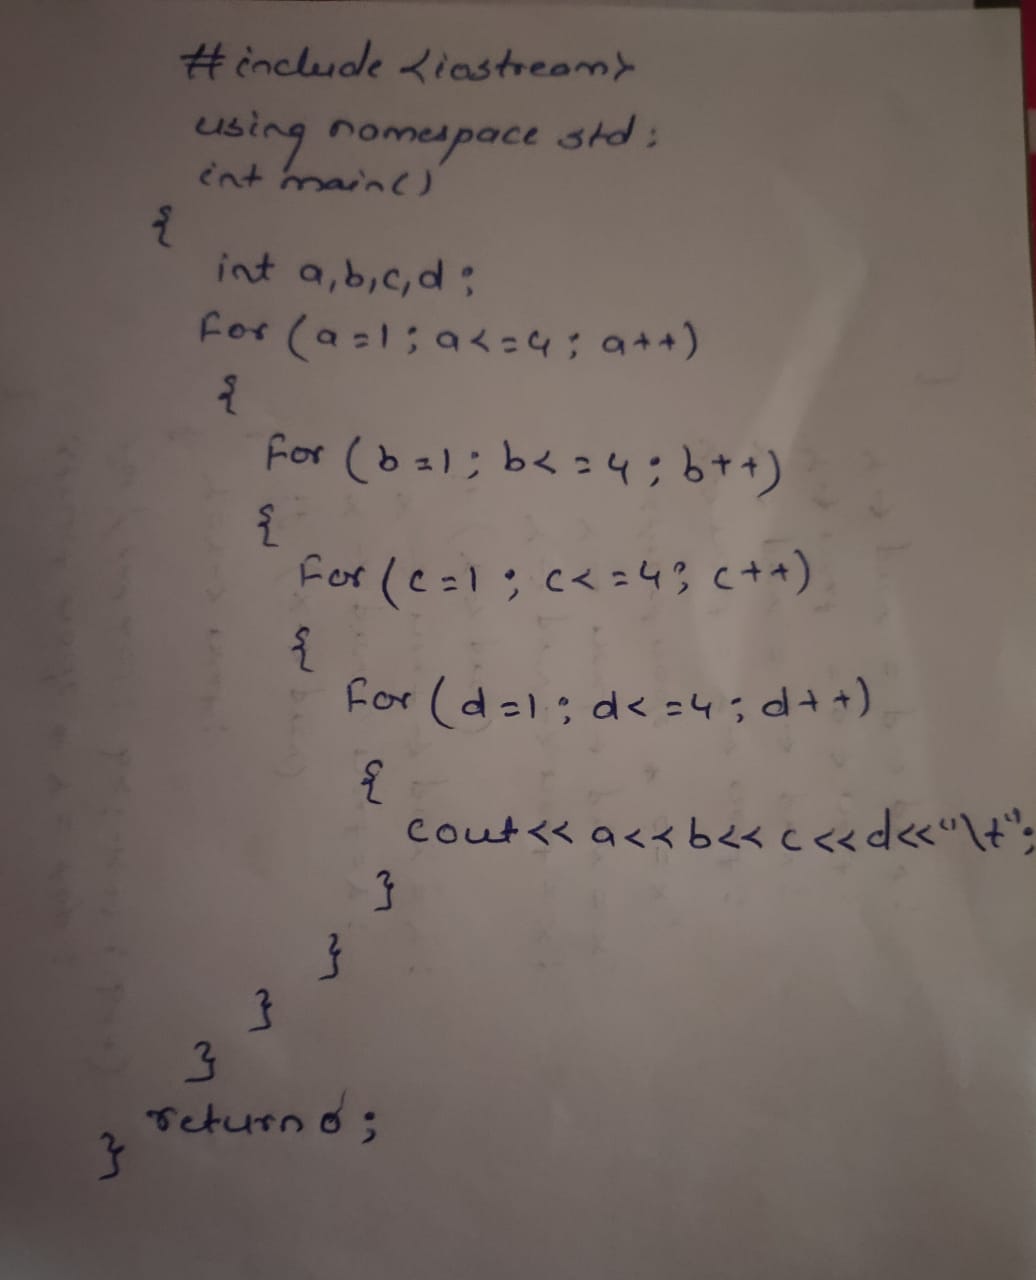 #include <iostream>
using namespace std;
int main()
{
int a,b,c,d;
For (a=1; a<=4; a++)
{
For (b=1; b<=4; b++)
{
For (c=1; c<=4; c++)
{
For (d=1; d<=4; d++)
{
cout<< a<<b<< c<<d<<"\t";
}
}
}
}
return 0;
}